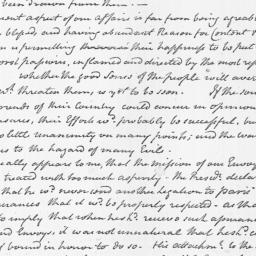 been drawn from them. —
present aspect of our affairs is far from being agreeable
blessed, and having abundant Reason for Content
permitting their happiness to be put
passports, inflamed and directed by the most
whether the good Sense of the people will aver
wh. threaten them, is yet to be seen. If the
friends of their Country could concur in opinion
sures, their Efforts wd. probably be successful, bu
so little unanimity on many points; and the wan
us to the hazard of many Evils.
ally appears to me, that the mission of our Envoy
treated with too much asperity. The Presidt. declar
that he wd. never send another Legation to Paris
surances that it wd. be properly respected. As tha
to imply that when he shd. receive such assurance
nd Envoys, it was not unnatural that he shd. c
f bound in honor to do so. His attachmt. to the